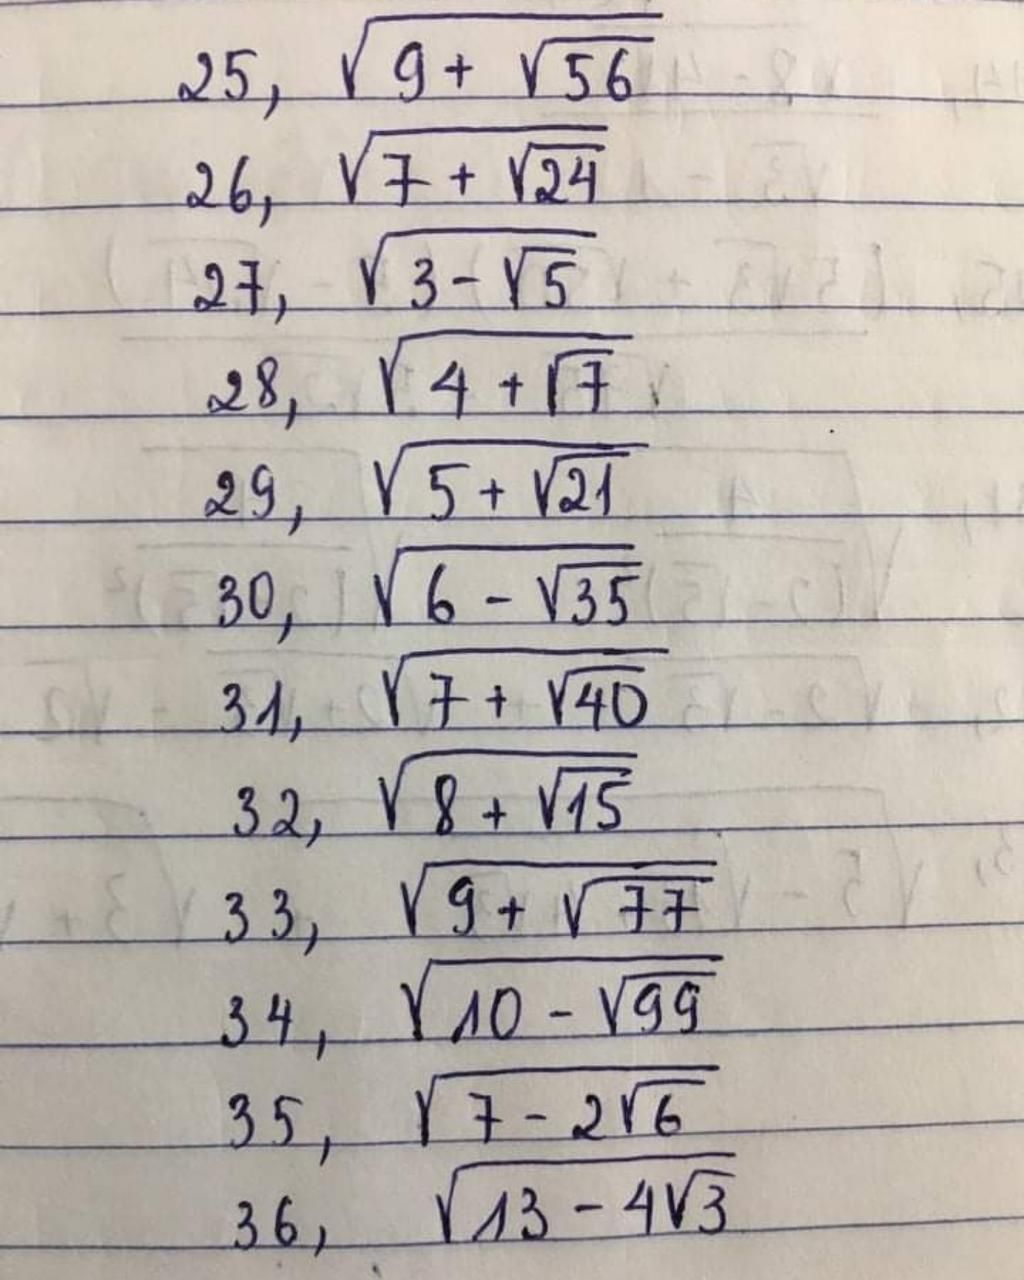 25, √(9 + √56)
26, √(7 + √24)
27, √(3 - √5)
28, √(4 + √7)
29, √(5 + √21)
30, √(6 - √35)
31, √(7 + √40)
32, √(8 + √15)
33, √(9 + √77)
34, √(10 - √99)
35, √(7 - 2√6)
36, √(13 - 4√3)